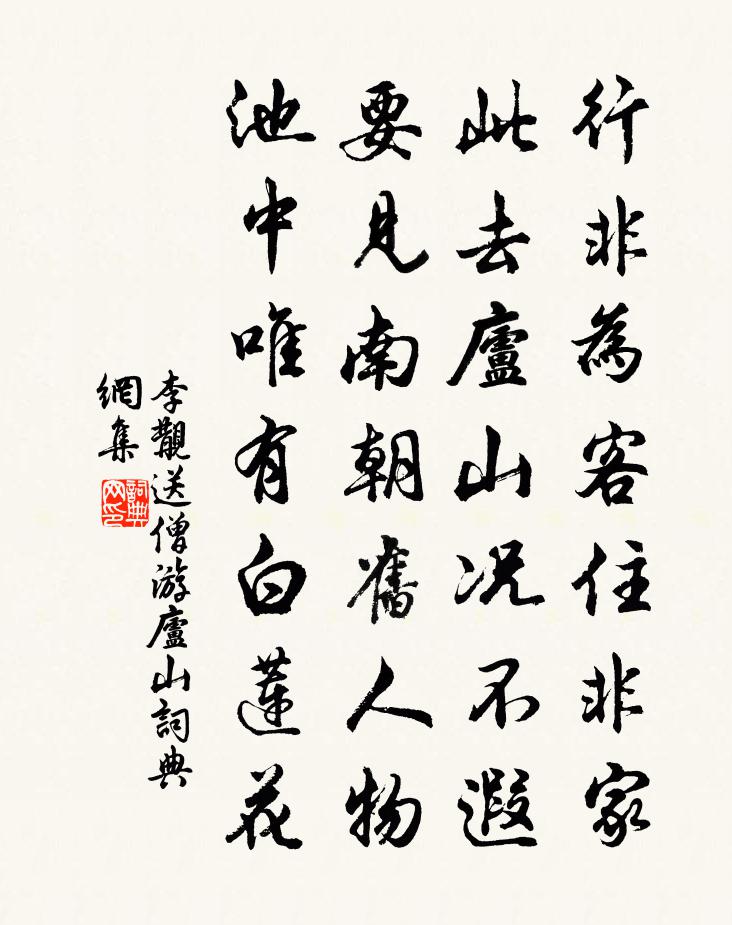 行非為客住非家
此去廬山况不遐
要見南朝舊人物
池中唯有白蓮花
李覯送僧游廬山詞典
網集
詞典網印